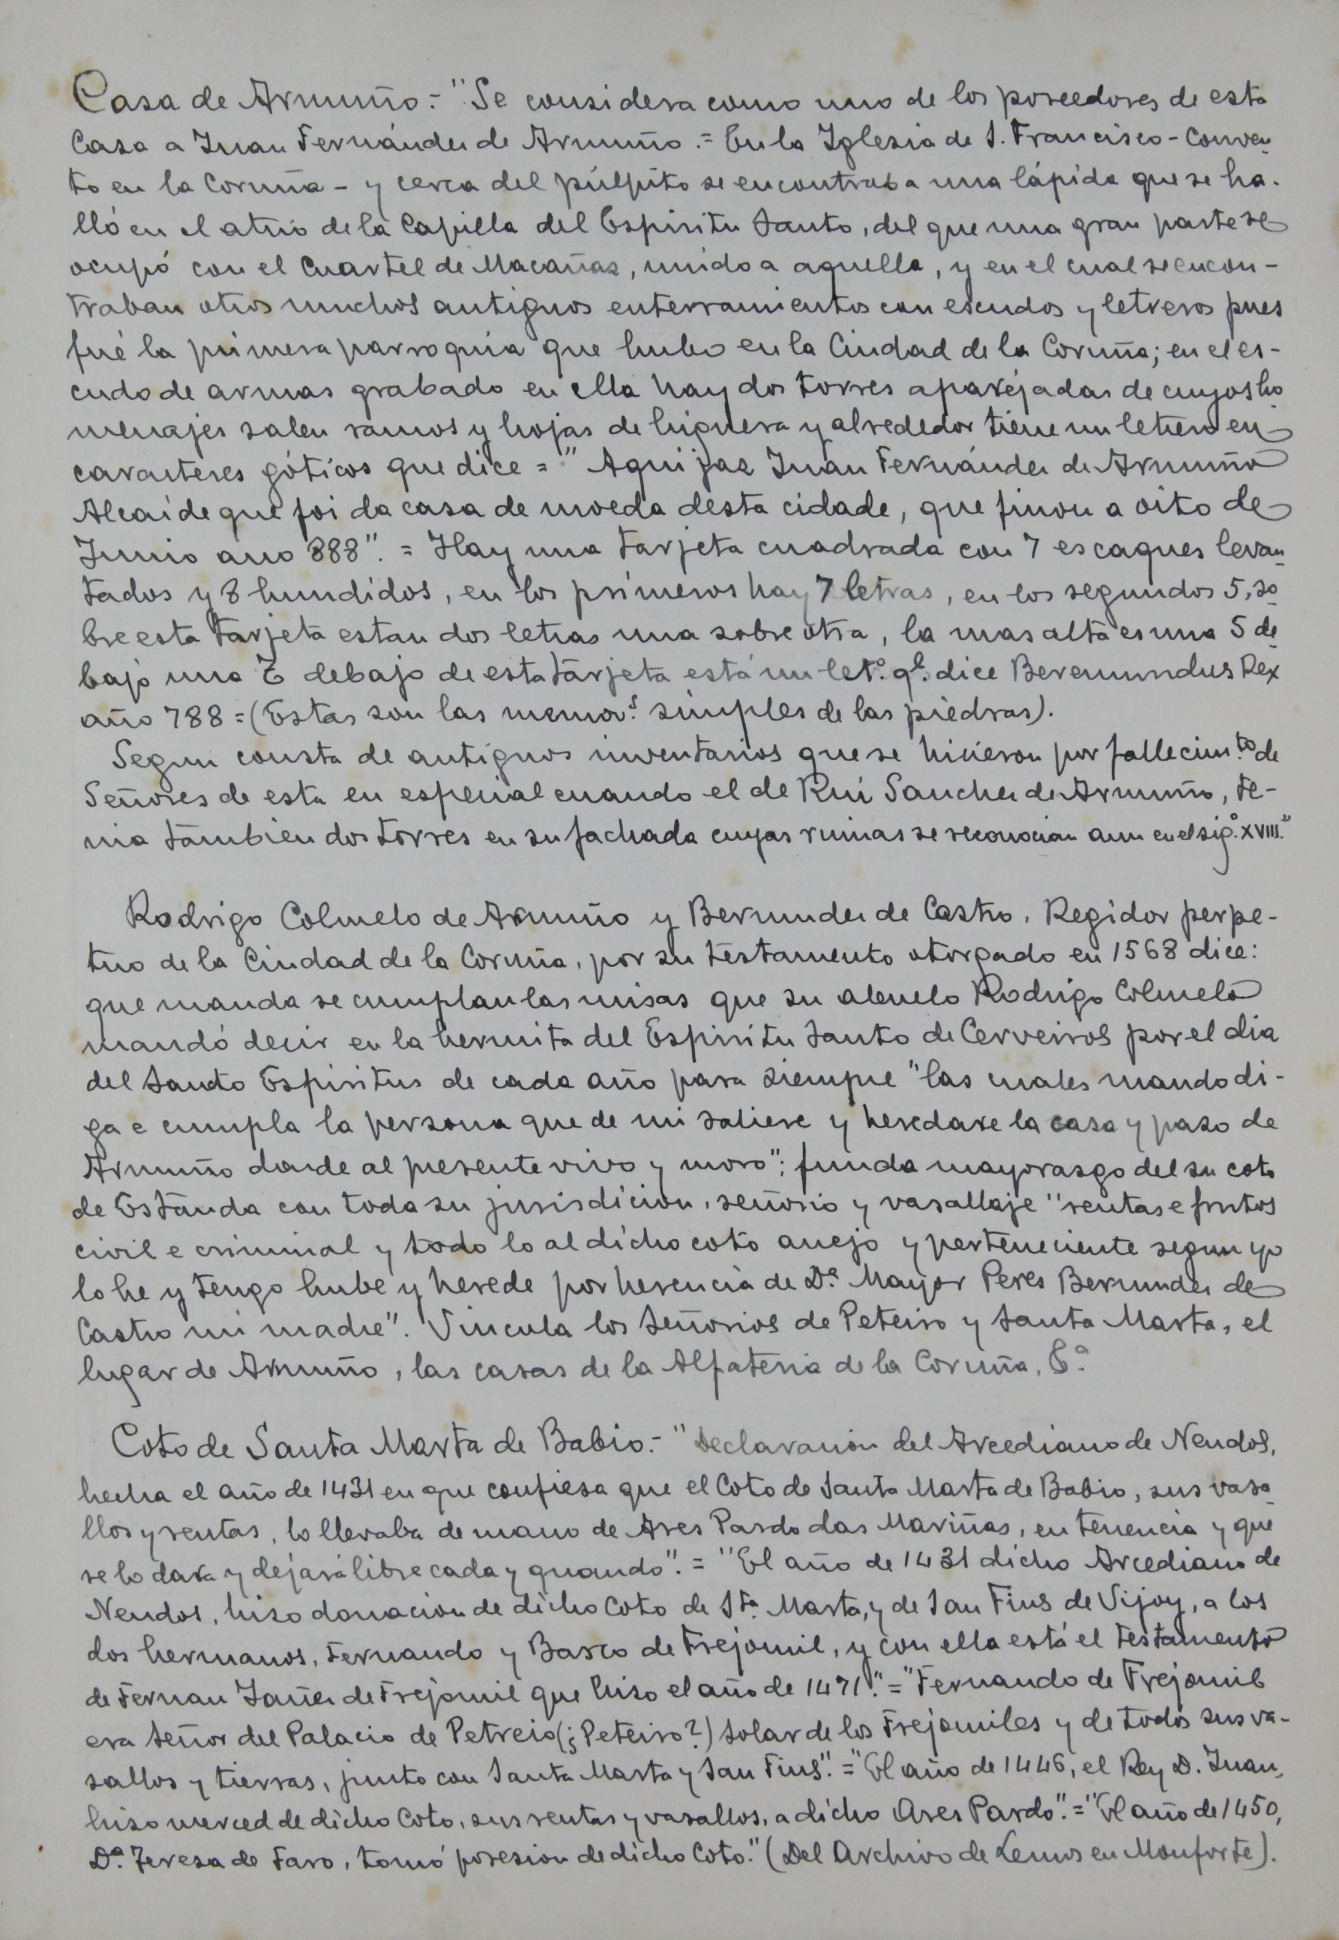 Casa de Armuño.- "Se considera como uno de los poseedores de esta
Casa a Juan Fernández de Armuño.= En la Iglesia de S. Francisco - Conven-
to en la Coruña - y cerca del púlpito se encontraba una lápida que se ha-
lló en el atrio de la Capilla del Espiritu Santo, del que una gran parte se
ocupó con el Cuartel de Macañas, unido a aquella, y en el cual se encon-
traban otros muchos antiguos enterramientos con escudos y letreros pues
fué la primera parroquia que hubo en la Ciudad de la Coruña; en el es-
cudo de armas grabado en ella hay dos torres aparejadas de cuyos ho
menajes salen ramos y hojas de higuera y alrededor tiene un letrero en
caracteres góticos que dice = "Aqui jaz Juan Fernández de Armuño
Alcaide que foi da casa de moeda desta cidade, que finou a oito de
Junio ano 888". = Hay una tarjeta cuadrada con 7 escaques levan-
tados y 8 hundidos, en los primeros hay 7 letras, en los segundos 5, so-
bre esta tarjeta estan dos letras una sobre otra, la mas alta es una S de-
bajo una debajo de esta tarjeta está un let.º q.e dice Beremundus Rex
año 788 = (Estas son las memor.s simples de las piedras).
Segun consta de antiguos inventarios que se hicieron por fallecim.to de
Señores de esta en especial cuando el de Rui Sanchez de Armuño, te-
nia tambien dos torres en su fachada cuyas ruinas se reconocian aun en el sig.º XVIII."
Rodrigo Colmelo de Armuño y Bermudez de Castro, Regidor perpe-
tuo de la Ciudad de la Coruña, por su testamento otorgado en 1568 dice:
que manda se cumplan las misas que su abuelo Rodrigo Colmelo
mandó decir en la hermita del Espiritu Santo de Cerveiros por el dia
del Santo Espiritus de cada año para siempre "las cuales mando di-
ga e cumpla la persona que de mi saliere y heredare la casa y pazo de
Armuño donde al presente vivo y moro"; funda mayorazgo del su coto
de Estanda con toda su jurisdicion, señorio y vasallaje "rentas e frutos
civil e criminal y todo lo al dicho coto anejo y perteneciente segun yo
lo he y tengo hube y herede por herencia de D.ª Mayor Peres Bermudez de
Castro mi madre". Vincula los Señorios de Peteiro y Santa Marta, el
lugar de Armuño, las casas de la Alfateria de la Coruña, &.ª
Coto de Santa Marta de Babio.- "Declaracion del Arcediano de Nendos,
hecha el año de 1431 en que confiesa que el Coto de Santa Marta de Babio, sus vasa-
llos y rentas, lo llevaba de mano de Ares Pardo das Mariñas, en tenencia y que
se lo dara y dejará libre cada y quando". = "El año de 1431 dicho Arcediano de
Nendos, hizo donacion de dicho Coto de Sta. Marta, y de San Fins de Vijoy, a los
dos hermanos, Fernando y Basco de Frejomil, y con ella está el testamento
de Fernan Yañez de Frejomil que hizo el año de 1471". = "Fernando de Frejomil
era Señor del Palacio de Petreio (¿Peteiro?) Solar de los Frejomiles y de todos sus va-
sallos y tierras, junto con Santa Marta y San Fins". = "El año de 1446, el Rey D. Juan,
hizo merced de dicho Coto, sus rentas y vasallos, a dicho Ares Pardo". = "El año de 1450,
D.ª Teresa de Faro, tomó posesion de dicho Coto." (Del Archivo de Lemos en Monforte).